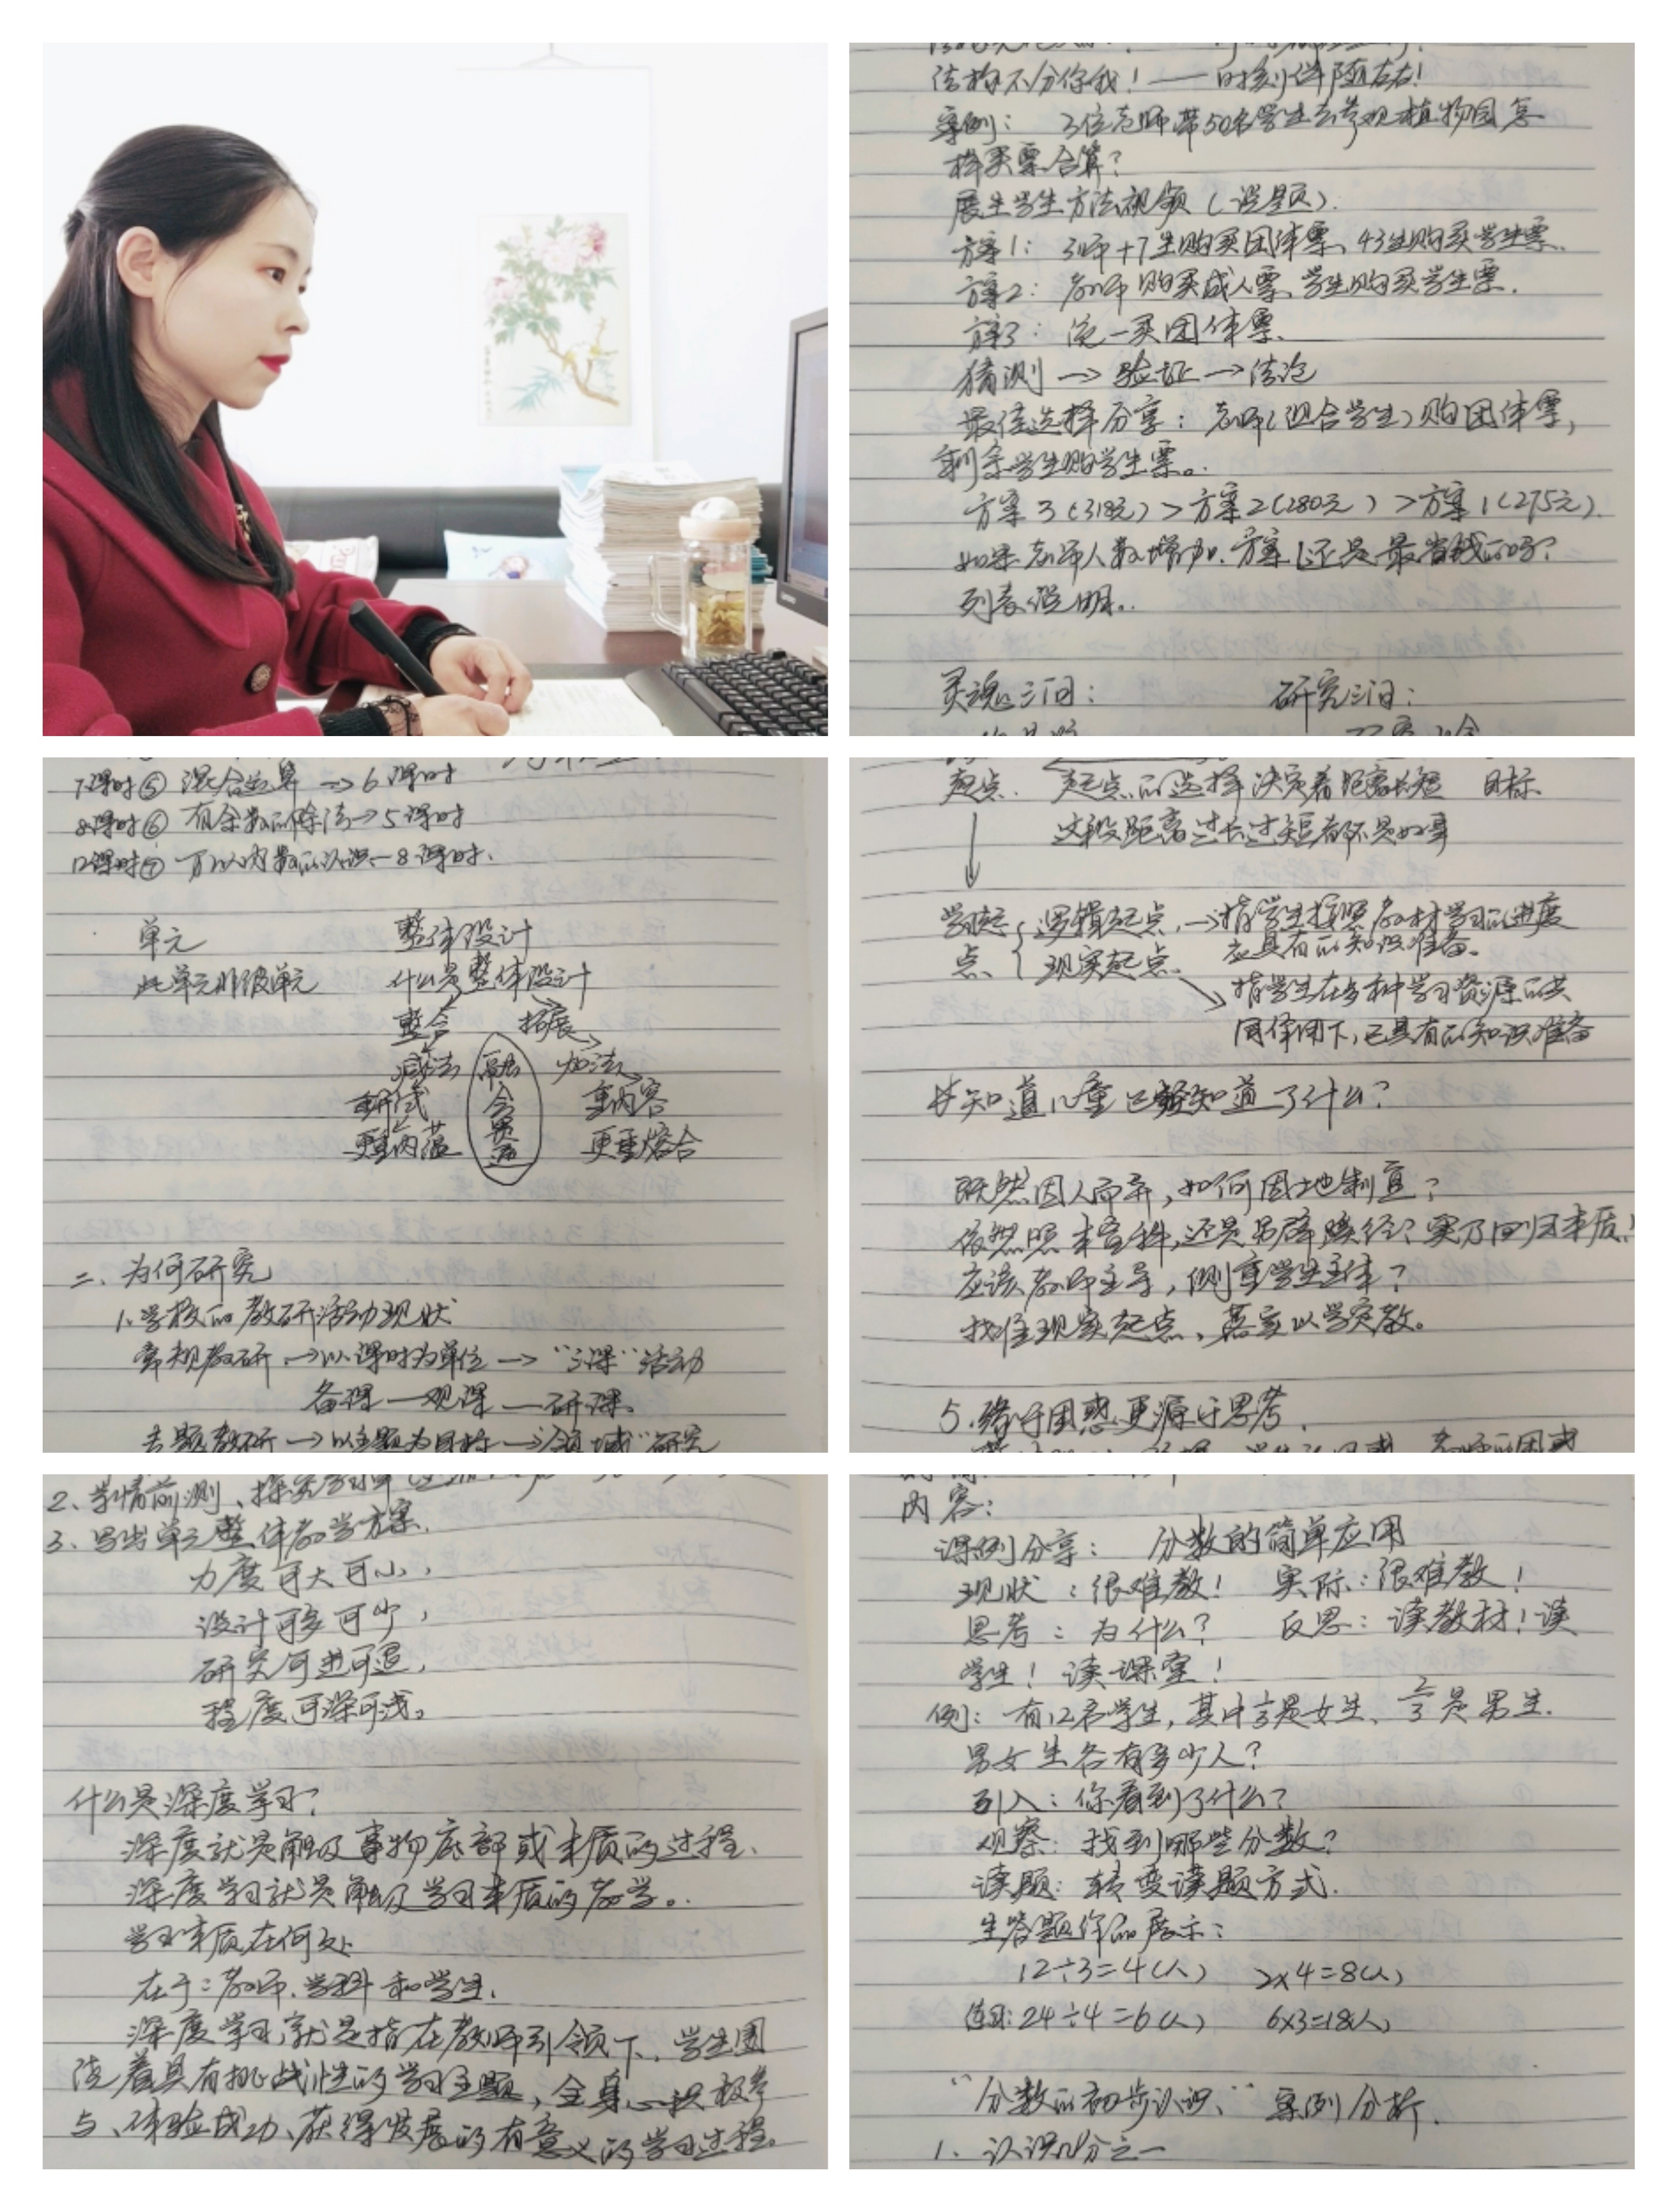 结构不分你我！——时刻伴随左右！
案例： 3位老师带50名学生去参观植物园怎
样买票合算？
展生学生方法视频（说题）.
方案1： 3师+7生购买团体票、43生购买学生票.
方案2： 教师购买成人票、学生购买学生票.
方案3： 统一买团体票.
猜测→验证→结论
最佳选择分享：老师（组合学生）购团体票，
剩余学生购学生票。
方案3（318元）>方案2（280元）>方案1（275元）.
如果老师人数增加.方案1还是最省钱的吗？
列表说明.
灵魂三问： 研究三问：
7课时⑤ 混合运算→6课时
8课时⑥ 有余数的除法→5课时
12课时⑦ 万以内数的认识—8课时.
单元 整体设计
此单元非彼单元 什么是整体设计
整合 拓展
减法 融会贯通 加法
重形式 重内容
更重内蕴 更重熔合
二、为何研究
1.学校的教研活动现状
常规教研→以课时为单位→“三课”活动
备课—观课—研课.
专题教研→以主题为目标→“领域”研究
起点. 起点的选择决定着距离长短 目标.
这段距离过长过短都不是好事
学习起点 逻辑起点→指学生按照教材学习的进度
应具有的知识准备.
现实起点 指学生在多种学习资源的共
同作用下，已具有的知识准备
知道儿童已经知道了什么？
既然因人而异，如何因地制宜？
依然照本宣科，还是另辟蹊径？实乃回归本质！
应该教师主导，侧重学生主体？
找准现实起点，落实以学定教。
5.缘于困惑更源于思考.
2、学情前测、探究学习单
3、写出单元整体教学方案.
力度可大可小，
设计可多可少，
研究可进可退，
程度可深可浅。
什么是深度学习？
深度就是触及事物底部或本质的过程.
深度学习就是触及学习本质的教学。
学习本质在何处
在于：教师.学科和学生.
深度学习，就是指在教师引领下，学生围
绕着具有挑战性的学习主题，全身心积极参
与、体验成功、获得发展的有意义的学习过程。
内容：
课例分享： 分数的简单应用
现状：很难教！ 实际：很难教！
思考：为什么？ 反思：读教材！读
学生！读课堂！
例：有12名学生，其中1/3是女生、2/3是男生.
男女生各有多少人？
引入：你看到了什么？
观察：找到哪些分数？
读题：转变读题方式.
生答题作品展示：
12÷3=4（人） 2×4=8（人）
练习：24÷4=6（人） 6×3=18（人）
“分数的初步认识”案例分析.
1.认识几分之一